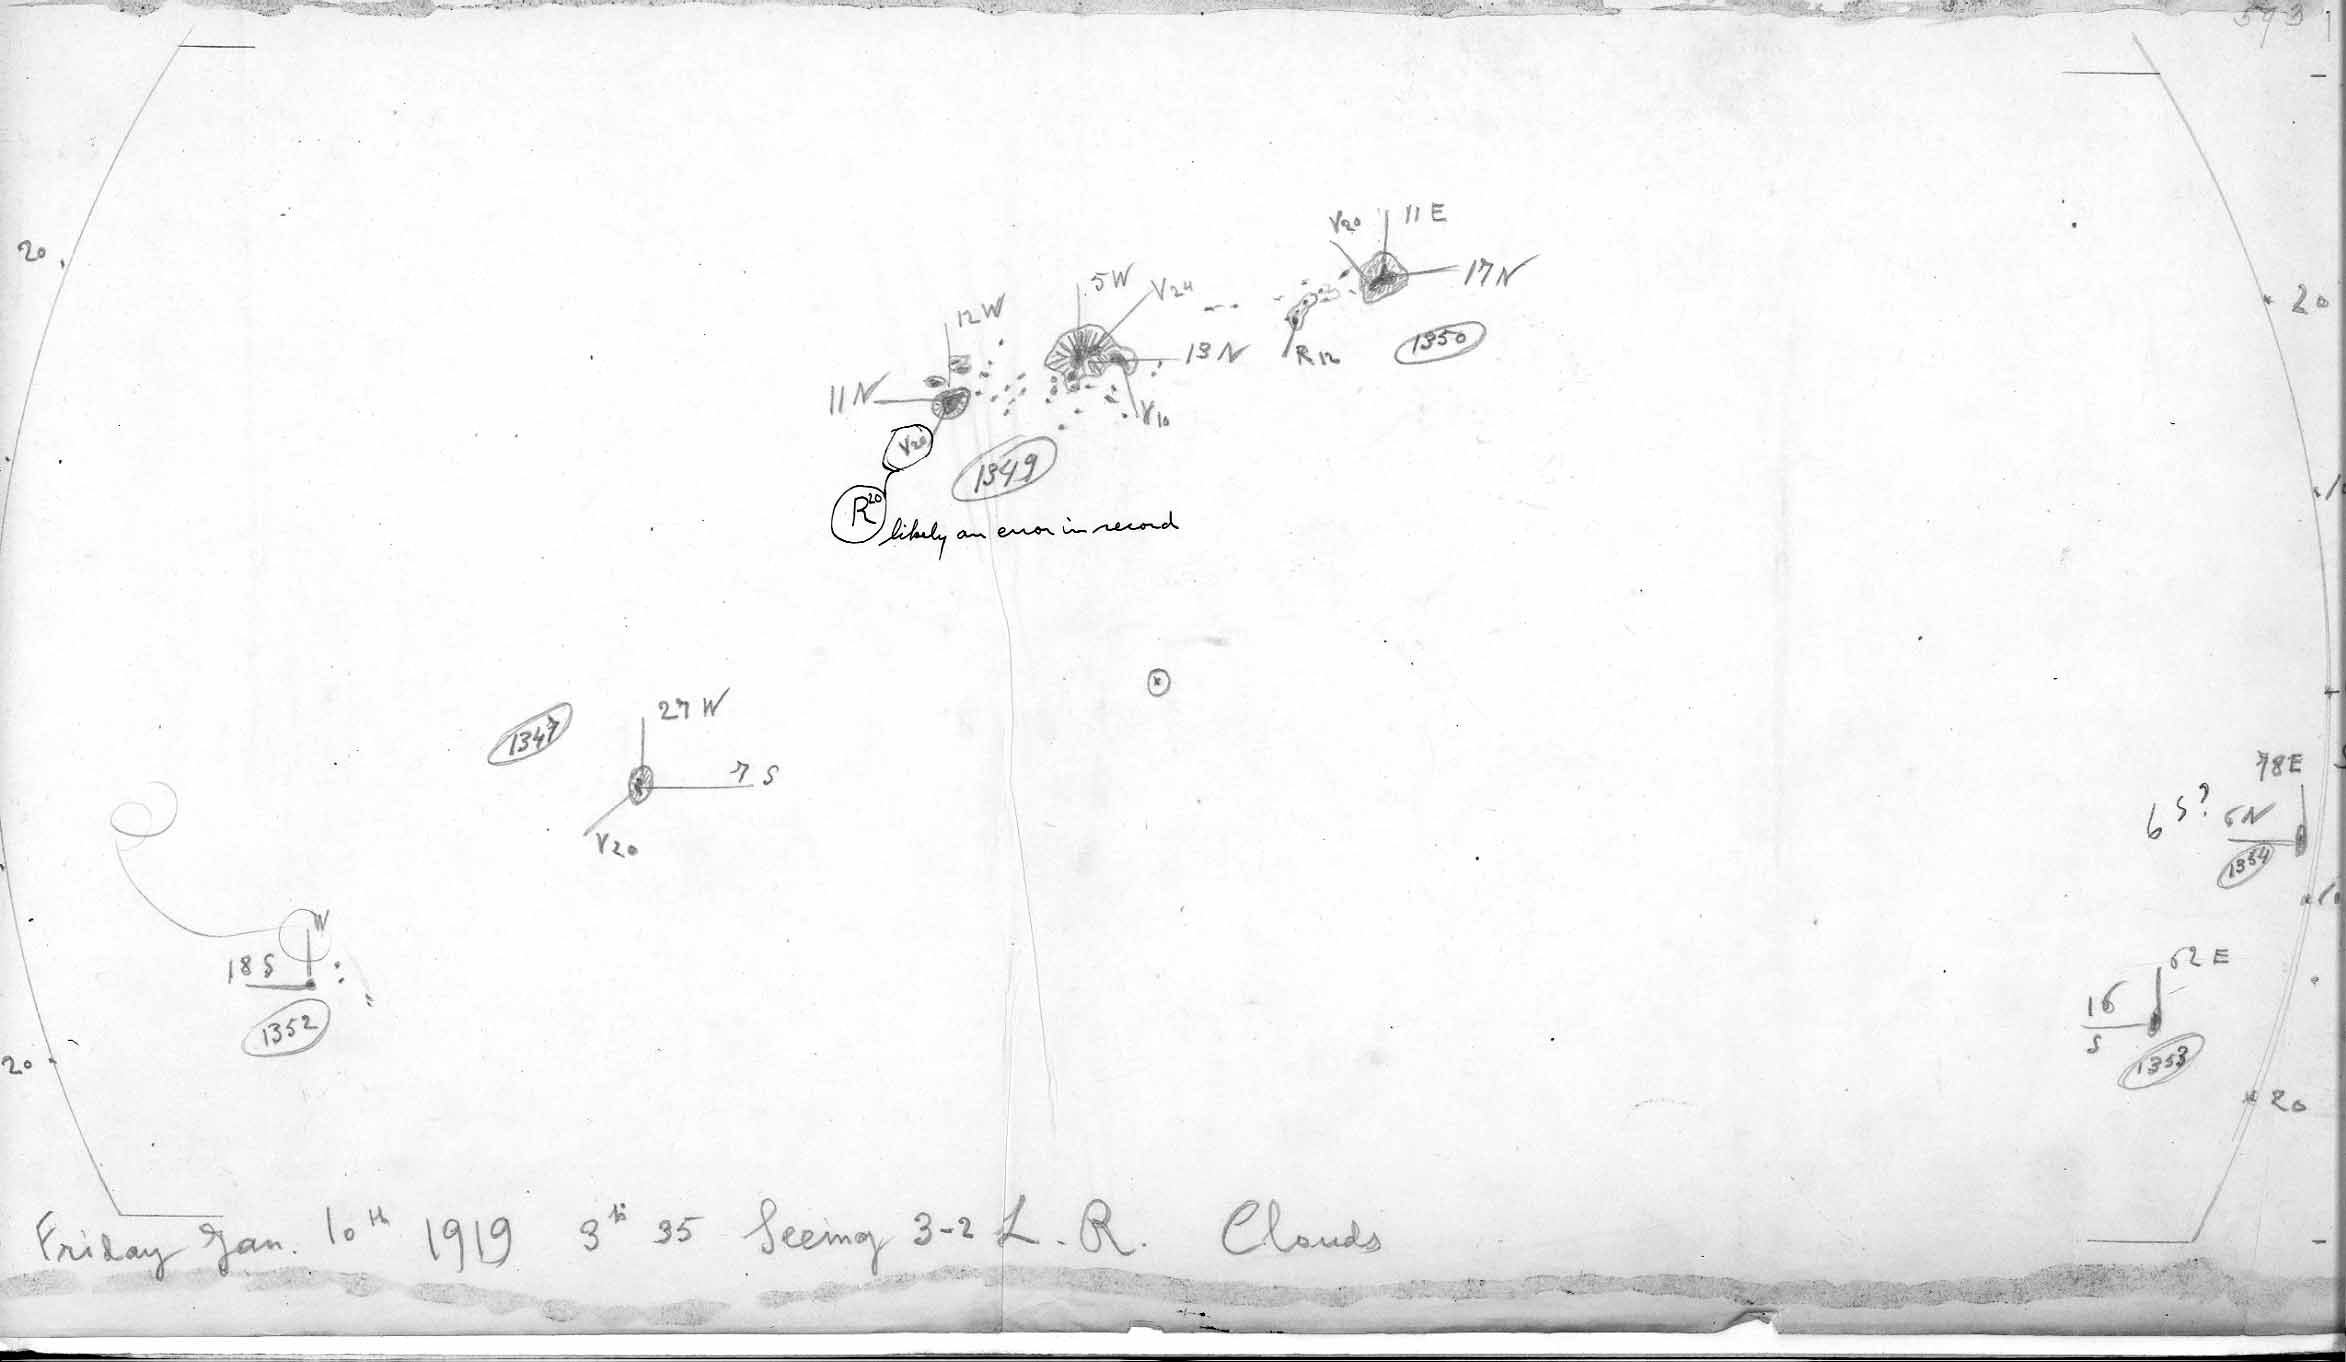 593
20
V20 11 E
17 N
20
5 W V24
12 W
13 N
R12 1350
11 N
V10
V20
1349
R20 likely an error in record
27 W
1347
7 S
V20
78 E
6 S? 6 N
1354
W
18 S
62 E
16
S
1352
1353
20
20
Friday Jan. 10th 1919 3h 35 Seeing 3-2 L. R. Clouds